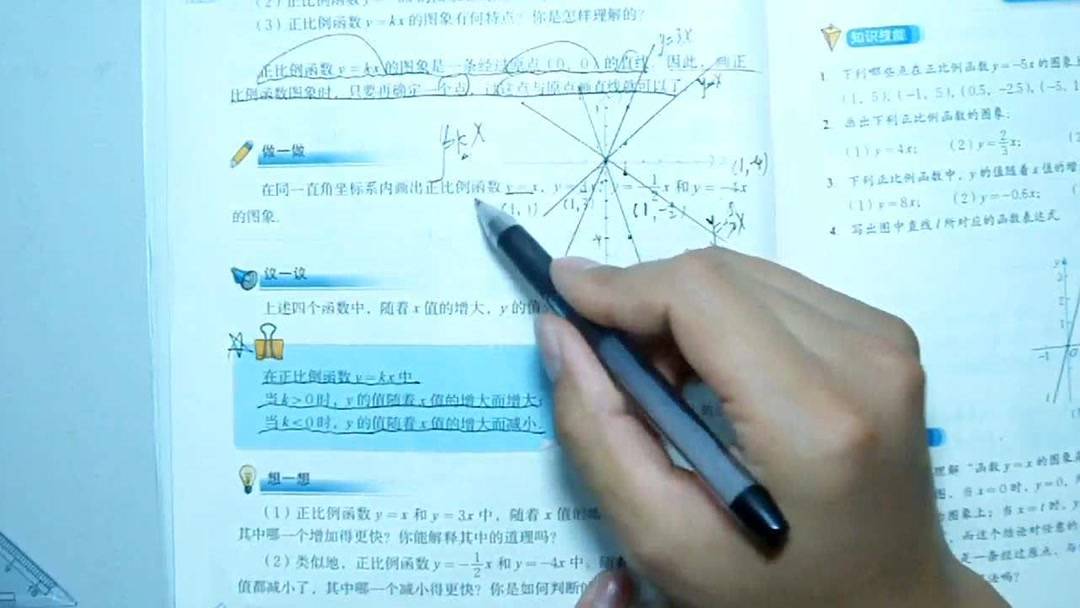 (3) 正比例函数 y=kx 的图象有何特点？你是怎样理解的？
正比例函数 y=kx 的图象是一条经过原点 (0, 0) 的直线. 因此, 画正
比例函数图象时, 只要再确定一个点, 过这点与原点画直线就可以了.
y=3x
y=x
做一做
y=kx
(1,-4)
在同一直角坐标系内画出正比例函数 y=x, y=3x, y=-1/2x 和 y=-4x
的图象.
(1,1) (1,3) (1,-1/2)
议一议
上述四个函数中, 随着 x 值的增大, y 的值
在正比例函数 y=kx 中,
当 k>0 时, y 的值随着 x 值的增大而增大;
当 k<0 时, y 的值随着 x 值的增大而减小.
想一想
(1) 正比例函数 y=x 和 y=3x 中, 随着 x 值的
其中哪一个增加得更快？你能解释其中的道理吗？
(2) 类似地, 正比例函数 y=-1/2x 和 y=-4x 中, 随着
值都减小了, 其中哪一个减小得更快？你是如何判断的
知识技能
1. 下列哪些点在正比例函数 y=-5x 的图象上
(1, 5), (-1, 5), (0.5, -2.5), (-5, 1
2. 画出下列正比例函数的图象:
(1) y=4x; (2) y=2/3x;
3. 下列正比例函数中, y 的值随着 x 值的增
(1) y=8x; (2) y=-0.6x;
4. 写出图中直线 l 所对应的函数表达式.
y
3
2
1
-1 0
l
理解“函数 y=x 的图象是
图, 当 x=0 时, y=0,
图象上; 当 x=t 时, y
而这个结论对任意的
是一条经过原点、与